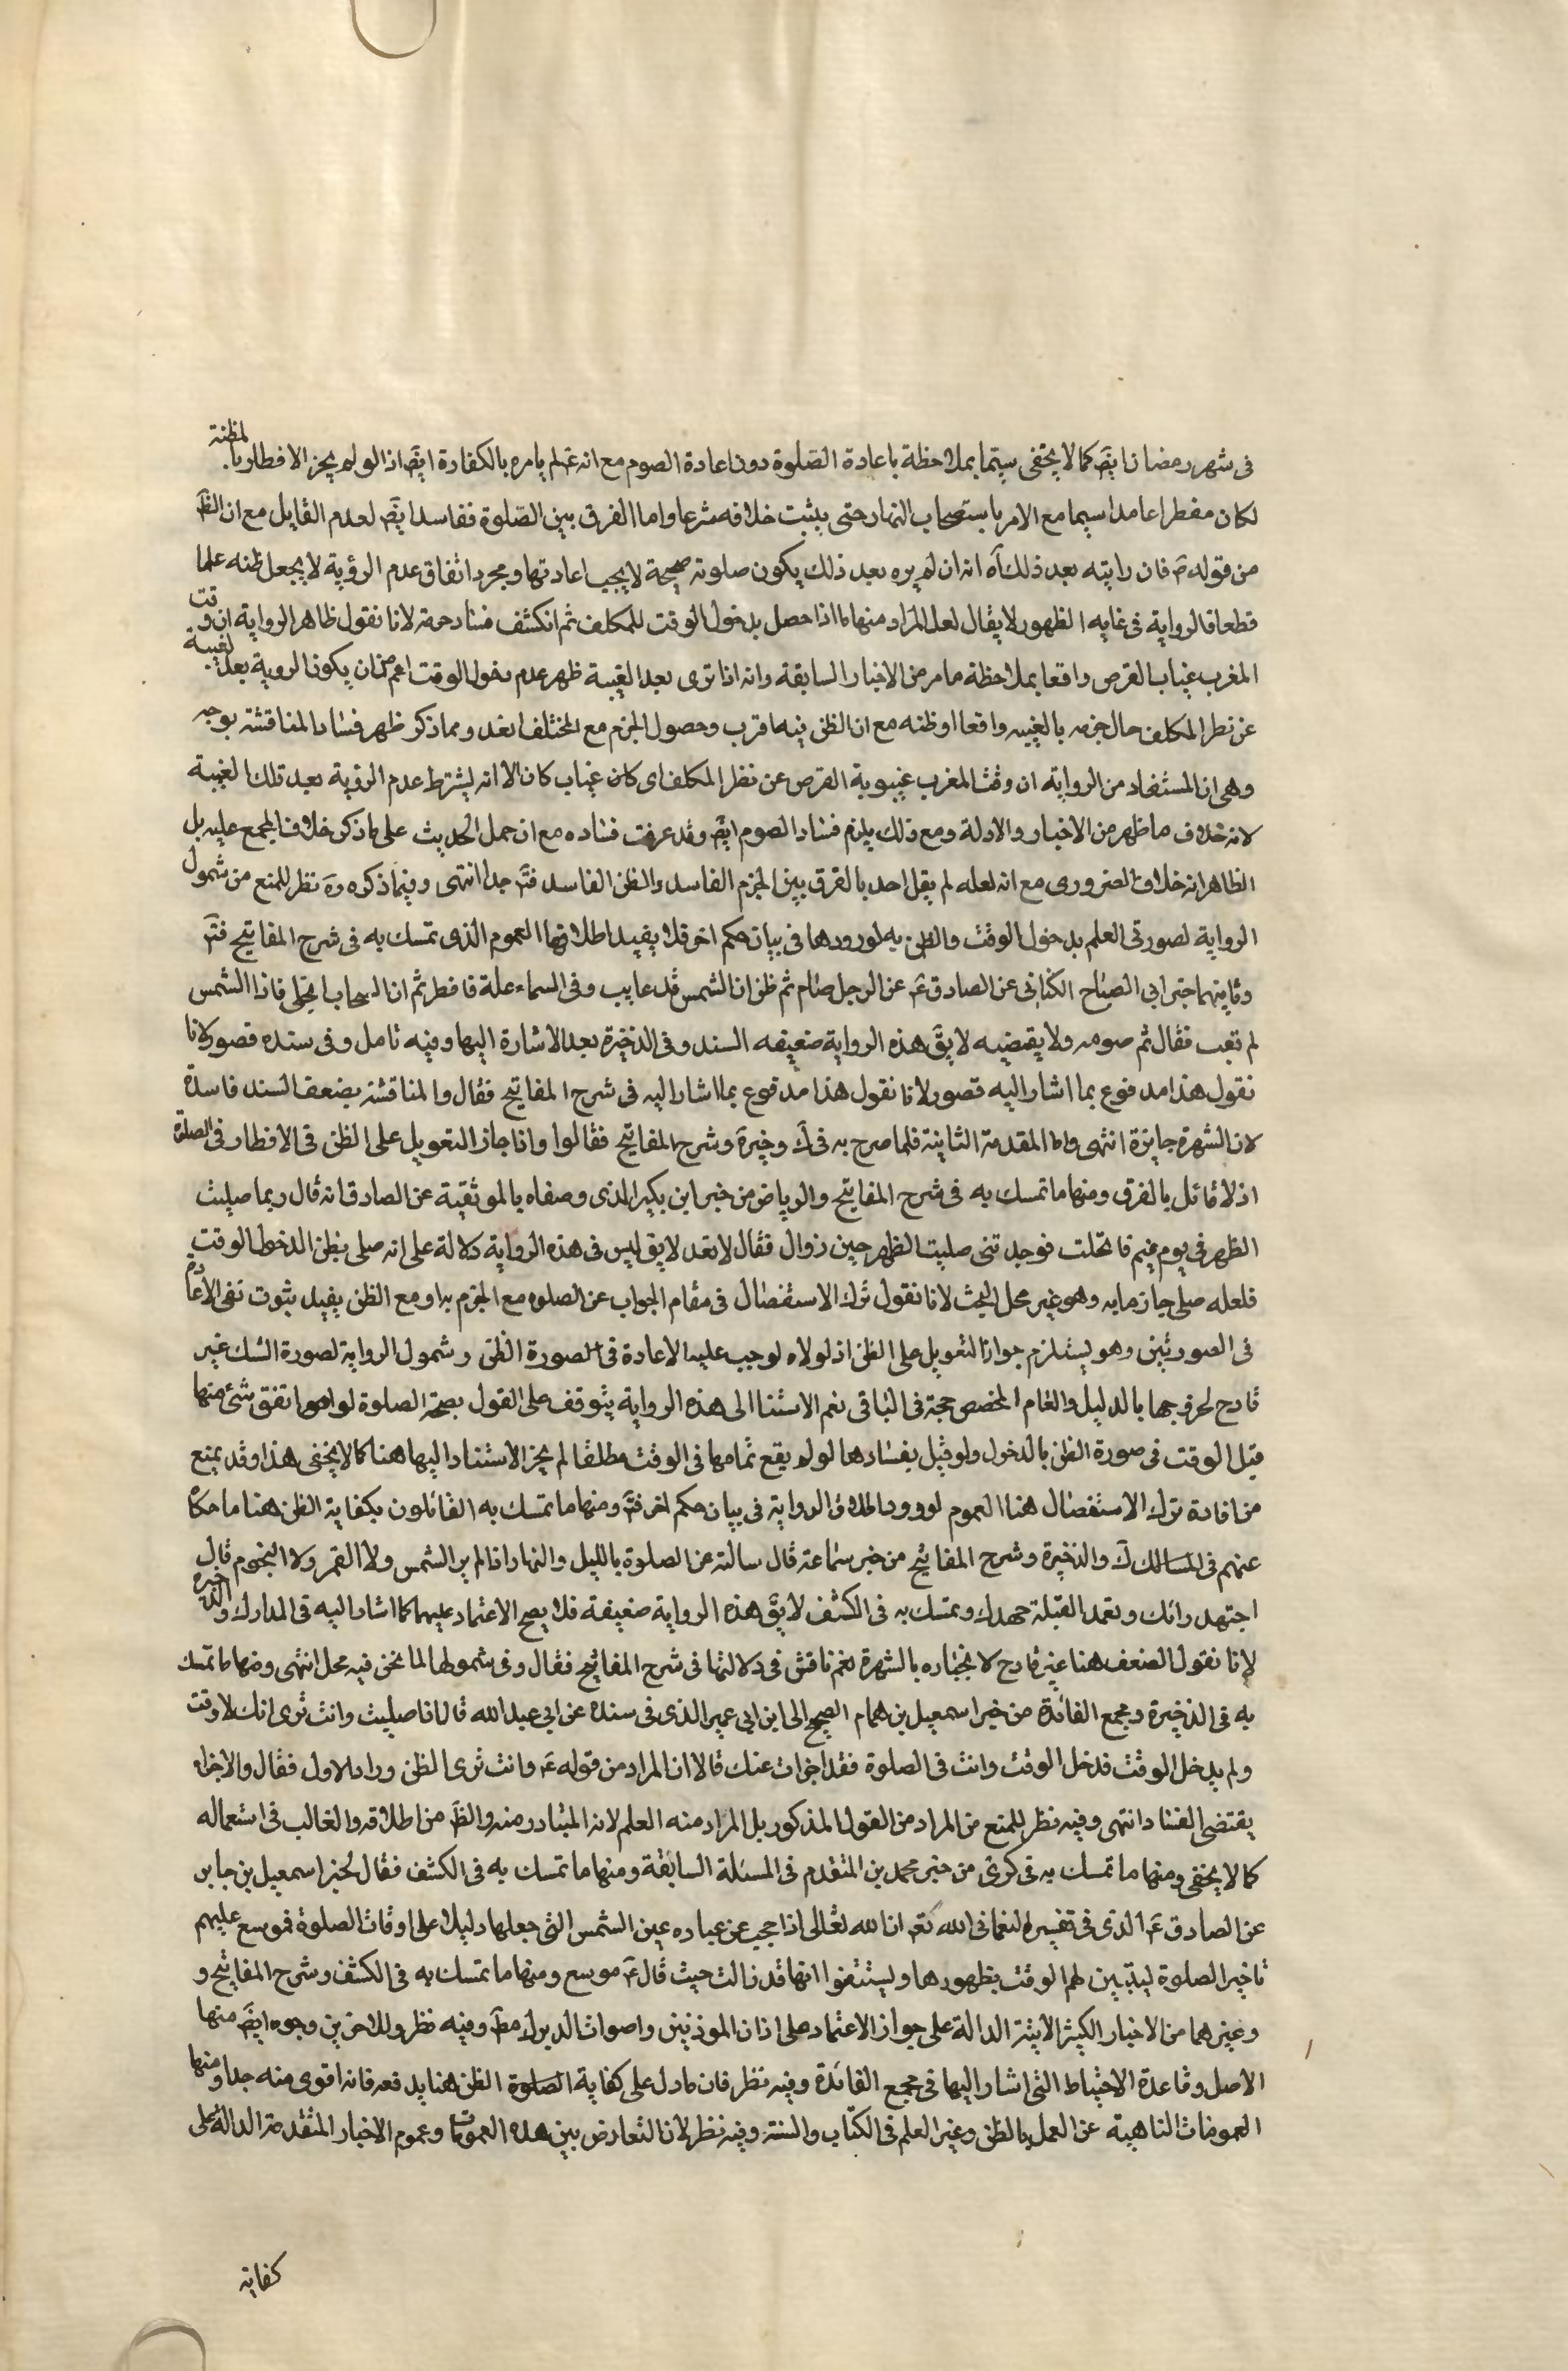 فى شهر رمضان ايضَ كما لا يخفى سيتما بملاحظة باعادة الصّلوة دون اعادة الصوم مع انه عَ لم يامره بالكفارة ايضَ اذ الو لم يجز الافطار با لمظنة
لكان مفطرا عامدا سيما مع الامر باستصحاب النهار حتى يثبت خلافه شرعا واما الفرق بين الصّلوة ففاسد ايضَ لعدم القايل مع ان الظَ
من قوله عَ فان رايته بعد ذلك آه انه ان لم يره بعد ذلك يكون صلوته صحيحة لا يجب اعادتها ومجرد اتفاق عدم الرؤية لا يجعل ظنه علما
قطعا فالرواية فى غايه الظهور لا يقال لعل المراد منها ما اذا حصل بدخول الوقت للمكلف ثم انكشف فساد جزمه لانا نقول ظاهر الرواية ان وقت
المغرب غياب القرص واقعا بملاحظة ما مر من الاخبار السابقة وانه اذا ترى بعد الغيبة ظهر عدم دخول الوقت اعم من ان يكون الروية بعد لغيبة
عن نظر المكلف حال جزمه بالغيبه واقعا او ظنه مع ان الظن فيه اقرب وحصول الجزم مع المختلف ابعد ومما ذكر ظهر فساد المناقشة بوجه
وهى ان المستفاد من الرواية ان وقت المغرب غيبوبة القرص عن نظر المكلف اى كان غياب كان الا انه يشترط عدم الرؤية بعد تلك الغيبة
لانه خلاف ما ظهر من الاخبار والادلة ومع ذلك يلزم فساد الصوم ايضَ وقد عرفت فساده مع ان حمل الحديث على ما ذكر خلاف المجمع عليه بل
الظاهر انه خلاف الضرورى مع انه لعله لم يقل احد بالفرق بين الجزم الفاسد والظن الفاسد فتَ جدا انتهى وفيما ذكره رهَ نظر للمنع من شمول
الرواية لصورتى العلم بدخول الوقت والظن به لورودها فى بيان حكم اخر فلا يفيد اطلاقها العموم الذى تمسك به فى شرح المفاتيح فتَ
وثانيهما خبر ابى الصباح الكنانى عن الصادق عَ عن الرجل صام ثم ظن ان الشمس قد غابت وفى السماء علة فافطر ثم ان السحاب انجلى فاذا الشمس
لم تغب فقال تم صومه ولا يقضيه لا يقَ هذه الرواية ضعيفه السند وفى الذخيرة بعد الاشارة اليها وفيه تامل وفى سنده قصور لانا
نقول هذا مدفوع بما اشار اليه قصور لانا نقول هذا مدفوع بما اشار اليه فى شرح المفاتيح فقال والمناقشة بضعف السند فاسدة
لان الشهرة جابرة انتهى واما المقدمة الثانية فلما صرح به فى كَ وخيرة وشرح المفاتيح فقالوا واذا جاز التعويل على الظن فى الافطار ففى الصلوة
اذ لا قائل بالفرق ومنها ما تمسك به فى شرح المفاتيح والرياض من خبر ابن بكير الذى وصفاه بالموثقية عن الصادق انه قال ربما صليت
الظهر فى يوم غيم فانجلت فوجدتنى صليت الظهر حين زوال فقال لا تعد لا يق ليس فى هذه الرواية دلالة على انه صلى بظن الدخول الوقت
فلعله صلى جازما به وهو غير محل البحث لانا نقول ترك الاستفصال فى مقام الجواب عن الصلوة مع الجزم به او مع الظن يفيد ثبوت نفى الاعادة
فى الصورتين وهو يستلزم جواز التعويل على الظن اذ لولاه لوجب عليه الاعادة فى الصورة الظن وشمول الرواية لصورة الشك غير
قادح لخروجها بالدليل والعام المخصص حجة فى الباقى نعم الاستناد الى هذه الرواية يتوقف على القول بصحة الصلوة لو اتفق شئ منها
قبل الوقت فى صورة الظن بالدخول ولو قيل بفسادها لو لم يقع تمامها فى الوقت مطلقا لم يجز الاستناد اليها هنا كما لا يخفى هذا وقد يمنع
من افادة ترك الاستفصال هنا العموم لورود اطلاق الرواية فى بيان حكم اخر فتَ ومنها ما تمسك به القائلون بكفاية الظن هنا ما حكاه
عنهم فى المسالك كَ والذخيرة وشرح المفاتيح من خبر سماعة قال سالته عن الصلوة بالليل والنهار اذا لم ير الشمس ولا القمر ولا النجوم قال
اجتهد رائك وتعمد القبلة جهدك وتمسك به فى الكشف لا يقَ هذه الرواية ضعيفة فلا يصح الاعتماد عليها كما اشار اليه فى المدارك والذخيرة
لانا نقول الضعف هنا غير قادح لانجباره بالشهرة نعم ناقش فى دلالتها فى شرح المفاتيح فقال وفى شمولها لما نحن فيه محل انتهى ومنها ما تمسك
به فى الذخيرة ومجمع الفائدة من خبر اسمعيل بن همام الصحيح الى ابن ابى عمير الذى فى سنده عن ابى عبد الله قال اذا صليت وانت ترى انك لا وقت
ولم يدخل الوقت فدخل الوقت وانت فى الصلوة فقد اجزات عنك قالا ان المراد من قوله عَ وانت ترى الظن وزاد الاول فقال والاجزاء
يقتضى الفساد انتهى وفيه نظر للمنع من المراد من القول المذكور بل المراد منه العلم لانه المتبادر منه والظَ من اطلاقه والغالب فى استعماله
كما لا يخفى ومنها ما تمسك به فى كرى من خبر محمد بن المتقدم فى المسئلة السابقة ومنها ما تمسك به فى الكشف فقال لخبر اسمعيل بن جابر
عن الصادق عَ الذى فى تفسير النعمانى ان الله تعالى اذا حجب عن عباده عين الشمس التى جعلها دليلا على اوقات الصلوة فموسع عليهم
تاخير الصلوة ليتبين لهم الوقت بظهورها ويستيقنوا انها قد زالت حيث قال عَ موسع ومنها ما تمسك به فى الكشف وشرح المفاتيح و
وغيرهما من الاخبار الكثيرة الاتية الدالة على جواز الاعتماد على اذان الموذنين واصوات الديوك مطَ وفيه نظر وللاخرين وجوه ايضَ منها
الاصل وقاعدة الاحتياط التى اشار اليها فى مجمع الفائدة وفيه نظر فان ما دل على كفاية الصلوة الظن هنا يدفعه فانه اقوى منه جدا ومنها
العمومات الناهية عن العمل بالظن وغير العلم فى الكتاب والسنة وفيه نظر لان التعارض بين هذه العمومات وعموم الاخبار المتقدمة الدالة على
كفاية